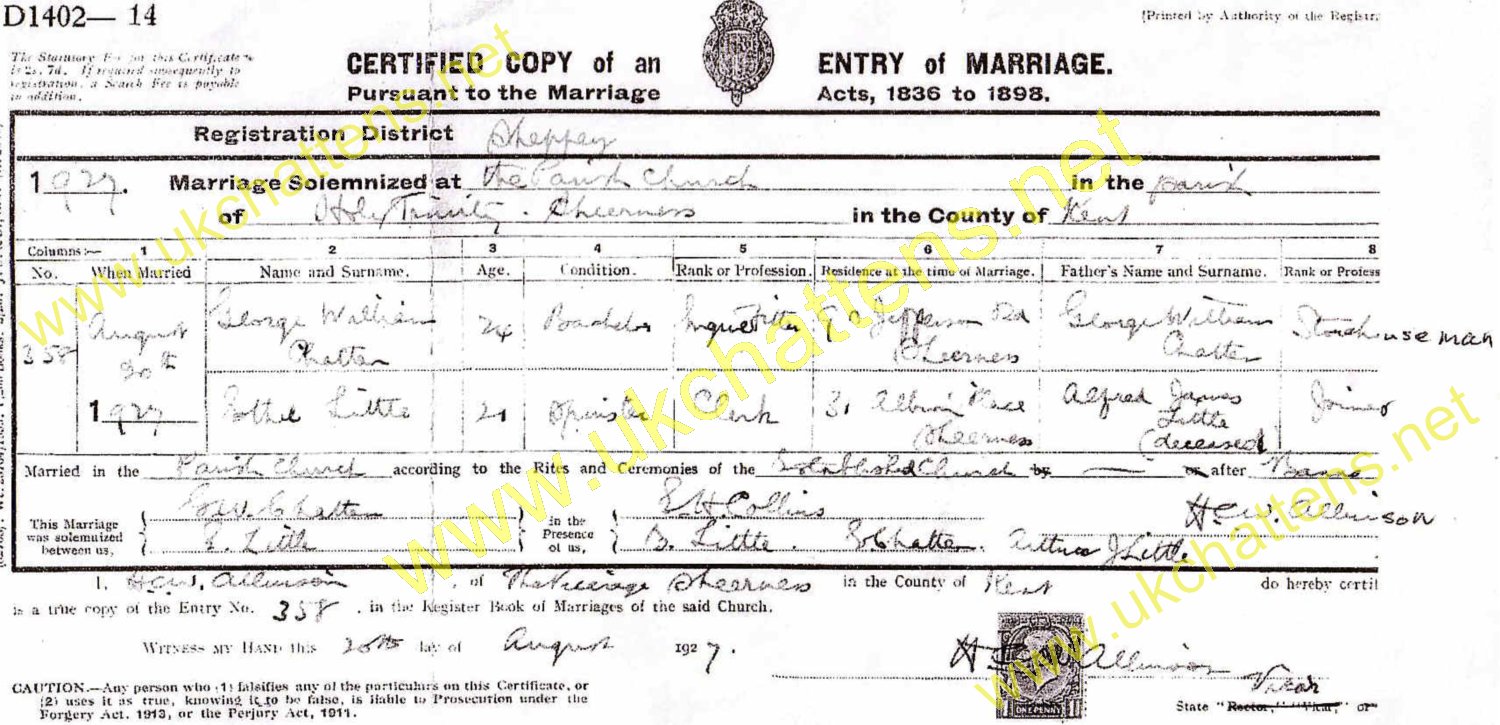 D1402— 14
[Printed by Authority of the Registr
The Statutory Fee for this Certificate is 2s. 7d. If required subsequently to registration, a Search Fee is payable in addition.
CERTIFIED COPY of an ENTRY of MARRIAGE.
Pursuant to the Marriage Acts, 1836 to 1898.
Registration District Sheppey
1927. Marriage Solemnized at the Parish Church in the parish
of Holy Trinity. Sheerness in the County of Kent
Columns:— 1 2 3 4 5 6 7 8
No. When Married Name and Surname. Age. Condition. Rank or Profession. Residence at the time of Marriage. Father's Name and Surname. Rank or Profess
358 August George William Chatten 24 Bachelor Engine Fitter Jefferson Rd Sheerness George William Chatten Storehouseman
1927 Ethel Little 21 Spinster Clerk 31 Albion Place Sheerness Alfred James Little (deceased) Joiner
Married in the Parish Church according to the Rites and Ceremonies of the Established Church by — or after Banns
This Marriage was solemnized between us, G W Chatten E. Little
in the Presence of us, E H Collins B. Little. E. Chatten. Arthur J Little.
H C W. Allinson
I, H C W. Allinson, of The Vicarage Sheerness in the County of Kent do hereby certif
is a true copy of the Entry No. 358, in the Register Book of Marriages of the said Church.
WITNESS MY HAND this day of August 1927.
Allinson
Vicar
State "Rector," "Vicar," or
ONE PENNY
CAUTION.—Any person who (1) falsifies any of the particulars on this Certificate, or
(2) uses it as true, knowing it to be false, is liable to Prosecution under the
Forgery Act, 1913, or the Perjury Act, 1911.
www.ukchattens.net
www.ukchattens.net
www.ukchattens.net